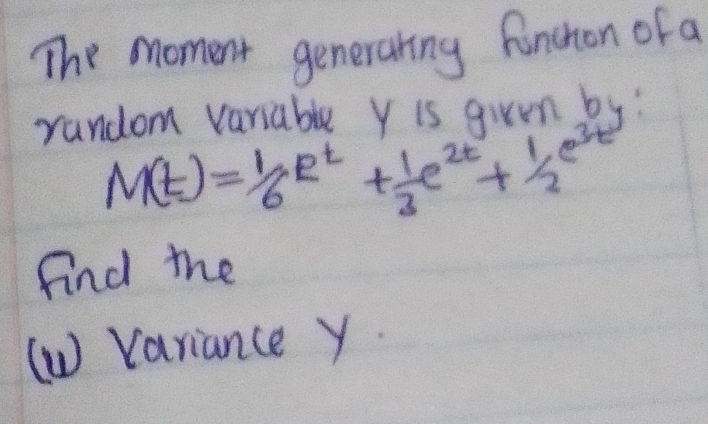 The moment generating function of a
random variable Y is given by:
M(t) = 1/6 e^t + 1/3 e^2t + 1/2 e^3t
find the
(ii) Variance Y.